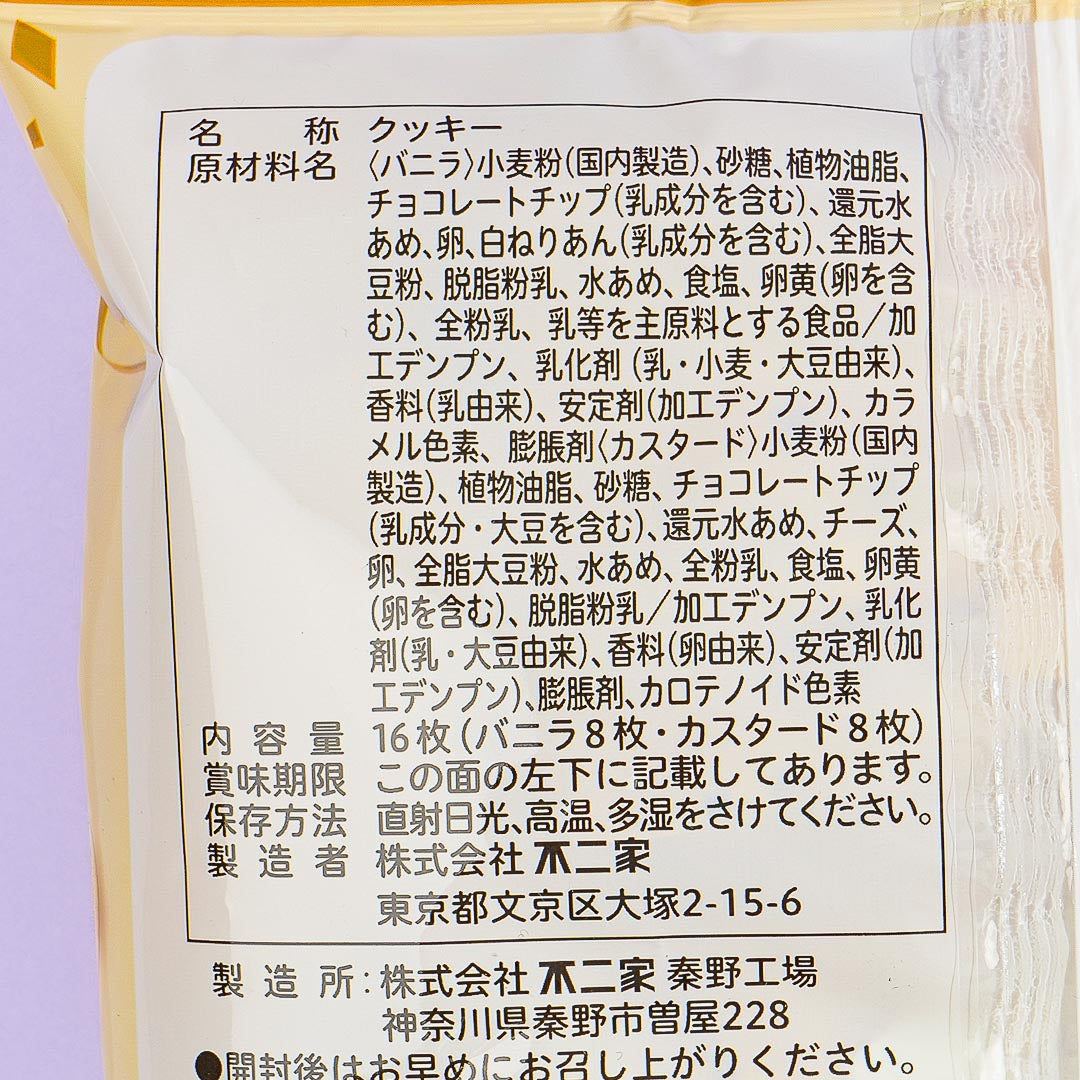 名称 クッキー
原材料名 〈バニラ〉小麦粉(国内製造)、砂糖、植物油脂、
チョコレートチップ(乳成分を含む)、還元水
あめ、卵、白ねりあん(乳成分を含む)、全脂大
豆粉、脱脂粉乳、水あめ、食塩、卵黄(卵を含
む)、全粉乳、乳等を主原料とする食品／加
工デンプン、乳化剤(乳・小麦・大豆由来)、
香料(乳由来)、安定剤(加工デンプン)、カラ
メル色素、膨脹剤〈カスタード〉小麦粉(国内
製造)、植物油脂、砂糖、チョコレートチップ
(乳成分・大豆を含む)、還元水あめ、チーズ、
卵、全脂大豆粉、水あめ、全粉乳、食塩、卵黄
(卵を含む)、脱脂粉乳／加工デンプン、乳化
剤(乳・大豆由来)、香料(卵由来)、安定剤(加
工デンプン)、膨脹剤、カロテノイド色素
内容量 16枚(バニラ8枚・カスタード8枚)
賞味期限 この面の左下に記載してあります。
保存方法 直射日光、高温、多湿をさけてください。
製造者 株式会社 不二家
東京都文京区大塚2-15-6
製造所:株式会社 不二家 秦野工場
神奈川県秦野市曽屋228
●開封後はお早めにお召し上がりください。